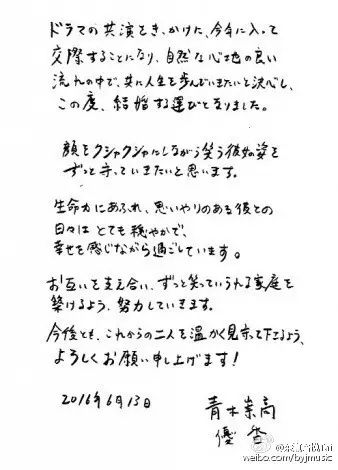 ドラマの共演をきっかけに、今年に入って
交際することになり、自然な心地の良い
流れの中で、共に人生を歩んでいきたいと決心し、
この度、結婚する運びとなりました。
顔をクシャクシャにしながら笑う彼女の姿を
ずっと守っていきたいと思います。
生命力にあふれ、思いやりのある彼との
日々はとても穏やかで、
幸せを感じながら過ごしています。
お互いを支え合い、ずっと笑っていられる家庭を
築けるよう、努力していきます。
今後とも、これからの二人を温かく見守って下さるよう、
よろしくお願い申し上げます!
2016年6月13日
青木崇高
優香
weibo.com/byjmusic